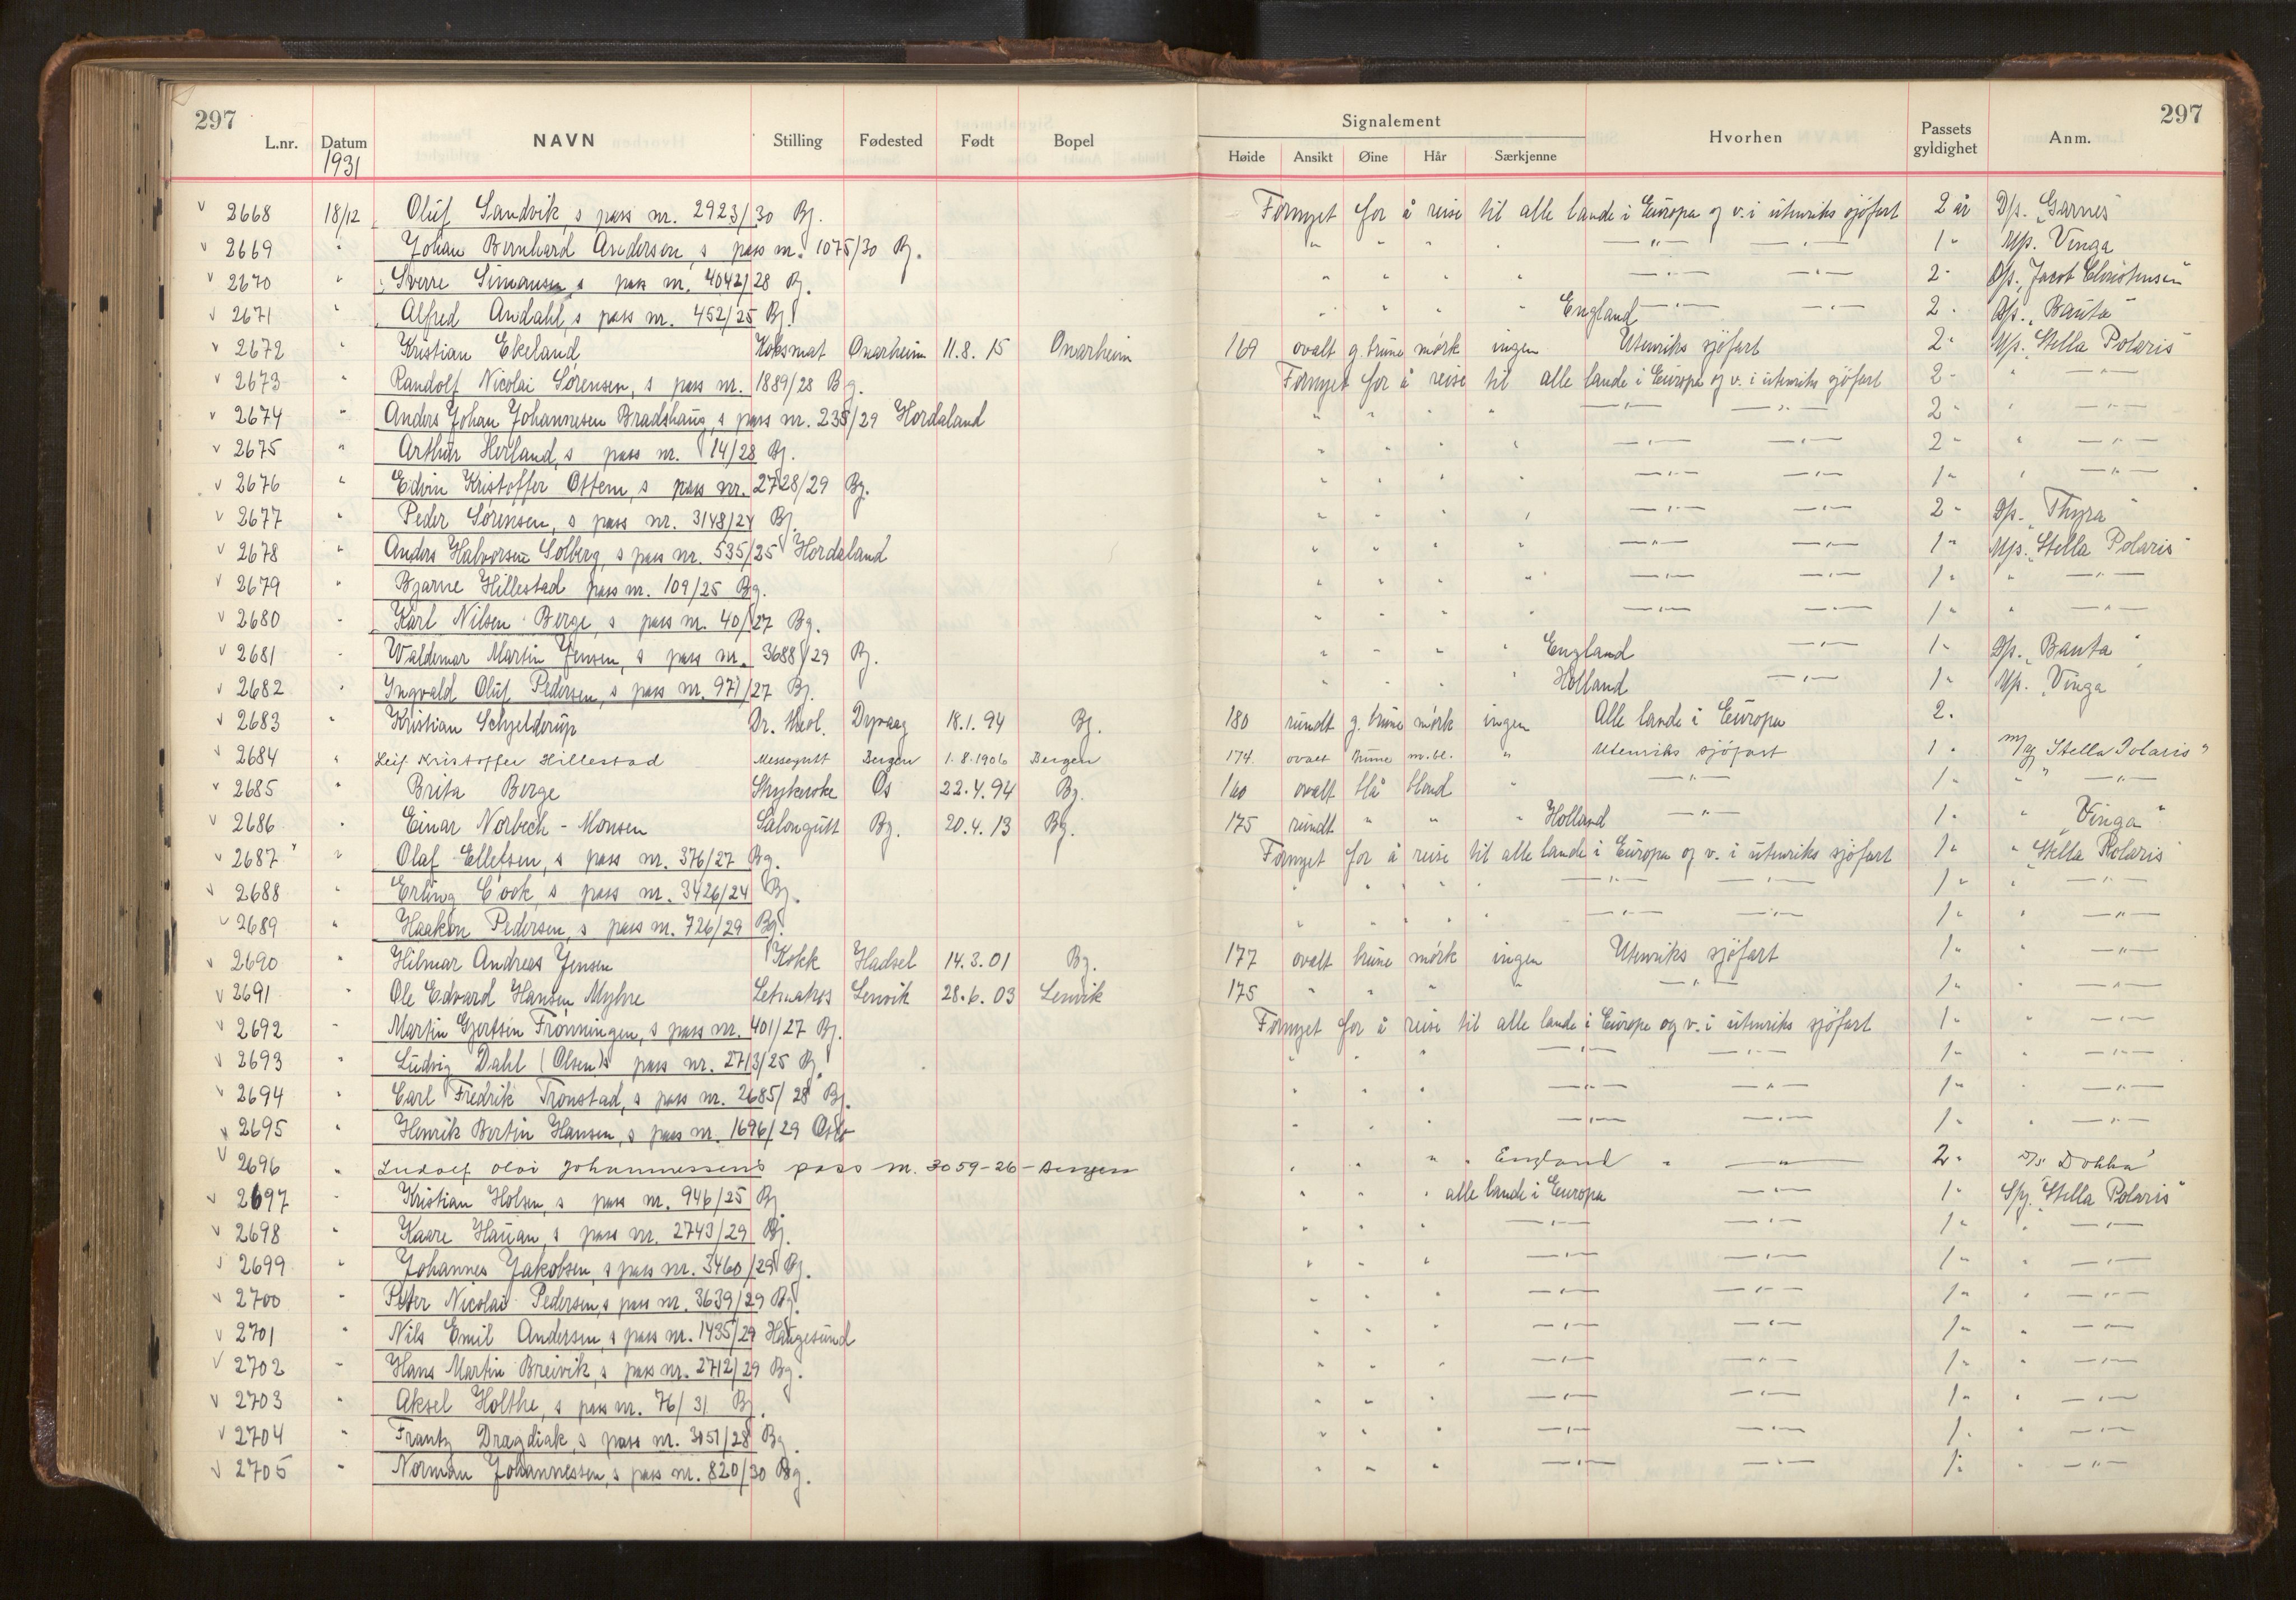 297 297
L.nr. Datum NAVN Stilling Fødested Født Bopel Signalement Hvorhen Passets gyldighet Anm.
Høide Ansikt Øine Hår Særkjenne
1931
v 2668 18/12 Oluf Sandvik s pass nr. 2923/30 Bg. Fornyet for å reise til alle lande i Europa og v. i utenriks sjøfart 2 år D/s. "Garnes"
v 2669 " Johan Bernhard Anderson, s pass nr. 1075/30 Bg. " " " " —"— —"— 1 " M/s. Vinga
v 2670 " Sverre Simonsen, s pass nr. 4042/28 Bg. " " " " —"— —"— 2 " D/s. "Jacob Christensen"
v 2671 " Alfred Andahl, s pass nr. 452/25 Bg. " " " " England —"— —"— 2 " D/s. "Bauta"
v 2672 " Kristian Ekeland Koksmat Onarheim 11.8.15 Onarheim 169 ovalt g. brune mørk ingen Utenriks sjøfart 2 " M/s. "Stella Polaris"
v 2673 " Randolf Nicolai Sørensen, s pass nr. 1889/28 Bg. Fornyet for å reise til alle lande i Europa og v. i utenriks sjøfart 2 " " —"—
v 2674 " Anders Johan Johannesen Bradshaug, s pass nr. 235/29 Hordaland " " " " —"— —"— 2 " " —"—
v 2675 " Arthur Herland, s pass nr. 14/28 Bg. " " " " —"— —"— 2 " " —"—
v 2676 " Edvin Kristoffer Ottem, s pass nr. 2728/29 Bg. " " " " —"— —"— 1 " " —"—
v 2677 " Peder Sørensen, s pass nr. 3148/24 Bg. " " " " —"— —"— 2 " D/s. "Thyra"
v 2678 " Anders Halvorsen Solberg, s pass nr. 535/25 Hordaland " " " " —"— —"— 1 " M/s. "Stella Polaris"
v 2679 " Bjarne Hillestad pass nr. 109/25 Bg. " " " " —"— —"— 1 " " —"—
v 2680 " Karl Nilsen Berge, s pass nr. 40/27 Bg. " " " " —"— —"— 1 " " —"—
v 2681 " Waldemar Martin Jensen, s pass nr. 3688/29 Bg. " " " " England —"— 1 " D/s. "Bauta"
v 2682 " Ingvald Oluf Pedersen, s pass nr. 971/27 Bg. " " " " Holland —"— 1 " M/s. "Vinga"
v 2683 " Kristian Schjelderup Dr. theol. Dypvaag 18.1.94 Bg. 180 rundt g. brune mørk ingen Alle lande i Europa 2 "
v 2684 " Leif Kristoffer Hillestad Messegutt Bergen 1.8.1906 Bergen 174 ovalt brune m.bl. " Utenriks sjøfart 1 " m/s Stella Polaris"
v 2685 " Brita Berge Strykerske Os 22.4.94 Bg. 160 ovalt blå blond " —"— 1 " " —"—
v 2686 " Einar Norbech - Monsen Salongutt Bg. 20.4.13 Bg. 175 rundt " " " Holland —"— 1 " " "Vinga"
v 2687 " Olaf Ellefsen, s pass nr. 376/27 Bg. Fornyet for å reise til alle lande i Europa og v. i utenriks sjøfart 1 " " "Stella Polaris"
v 2688 " Erling Cook, s pass nr. 3426/24 Bg. " " " " —"— —"— 1 " " —"—
v 2689 " Haakon Pedersen, s pass nr. 726/29 Bg. " " " " —"— —"— 1 " " —"—
v 2690 " Hilmar Andreas Jensen Kokk Hadsel 14.3.01 Bg. 177 ovalt brune mørk ingen Utenriks sjøfart 1 " " —"—
v 2691 " Ole Edvard Hansen Myhre Letmatros Lenvik 28.6.03 Lenvik 175 " " " " —"— 1 " " —"—
v 2692 " Martin Gjertsen Frønningen, s pass nr. 401/27 Bg. Fornyet for å reise til alle lande i Europa og v. i utenriks sjøfart 1 " " —"—
v 2693 " Ludvig Dahl (Olsen)s pass nr. 2713/25 Bg. " " " —"— —"— 1 " " —"—
v 2694 " Carl Fredrik Tronstad, s pass nr. 2685/28 Bg. " " " —"— —"— 1 " " —"—
v 2695 " Henrik Bertin Hansen, s pass nr. 1696/29 Oslo " " " —"— —"— 1 " " —"—
v 2696 " Ludolf Olai Johannessens pass nr. 3059-26 - Bergen " " " " England " —"— 2 " D/s "Dokka"
v 2697 " Kristian Holsen, s pass nr. 946/25 Bg " " " alle lande i Europa —"— 1 " S/y. "Stella Polaris"
v 2698 " Kaare Hauan, s pass nr. 2743/29 Bg. " " " —"— —"— 1 " " —"—
v 2699 " Johannes Jakobsen, s pass nr. 3460/29 Bg. " " " —"— —"— 1 " " —"—
v 2700 " Peter Nicolai Pedersen, s pass nr. 3639/29 Bg. " " " —"— —"— 1 " " —"—
v 2701 " Nils Emil Andersen, s pass nr. 1435/29 Haugesund " " " —"— —"— 1 " " —"—
v 2702 " Hans Martin Breivik, s pass nr. 2712/29 Bg. " " " —"— —"— 1 " " —"—
v 2703 " Aksel Holthe, s pass nr. 76/31 Bg. " " " —"— —"— 1 " " —"—
v 2704 " Frantz Dragdiak, s pass nr. 3051/28 Bg. " " " —"— —"— 1 " " —"—
v 2705 " Norman Johannessen, s pass nr. 820/30 Bg. " " " —"— —"— 1 " " —"—